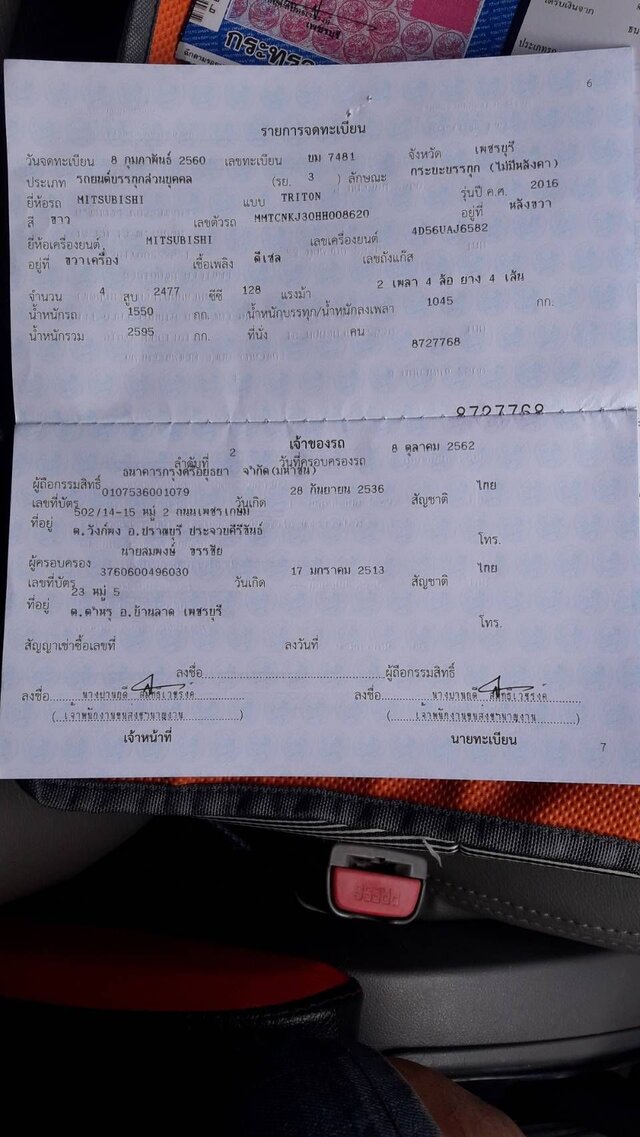 เพชรบุรี
กระทรว
ได้รับเงินจาก
ประเภทร
6
รายการจดทะเบียน
วันจดทะเบียน 8 กุมภาพันธ์ 2560 เลขทะเบียน บม 7481 จังหวัด เพชรบุรี
ประเภท รถยนต์บรรทุกส่วนบุคคล (รย. 3 ) ลักษณะ กระบะบรรทุก (ไม่มีหลังคา)
ยี่ห้อรถ MITSUBISHI แบบ TRITON รุ่นปี ค.ศ. 2016
สี ขาว เลขตัวรถ MMTCNKJ30HH008620 อยู่ที่ หลังขวา
ยี่ห้อเครื่องยนต์ MITSUBISHI เลขเครื่องยนต์ 4D56UAJ6582
อยู่ที่ ขวาเครื่อง เชื้อเพลิง ดีเซล เลขถังแก๊ส
จำนวน 4 สูบ 2477 ซีซี 128 แรงม้า 2 เพลา 4 ล้อ ยาง 4 เส้น
น้ำหนักรถ 1550 กก. น้ำหนักบรรทุก/น้ำหนักลงเพลา 1045 กก.
น้ำหนักรวม 2595 กก. ที่นั่ง คน
8727768
8727768
เจ้าของรถ
ลำดับที่ 2 วันที่ครอบครองรถ 8 ตุลาคม 2562
ผู้ถือกรรมสิทธิ์ ธนาคารกรุงศรีอยุธยา จำกัด(มหาชน)
เลขที่บัตร 0107536001079 วันเกิด 28 กันยายน 2536 สัญชาติ ไทย
ที่อยู่ 502/14-15 หมู่ 2 ถนนเพชรเกษม
ต.วังก์พง อ.ปราณบุรี ประจวบคีรีขันธ์ โทร.
ผู้ครอบครอง นายสมพงษ์
เลขที่บัตร 3760600496030 วันเกิด 17 มกราคม 2513 สัญชาติ ไทย
ที่อยู่ 23 หมู่ 5
ต.ตำหรุ อ.บ้านลาด เพชรบุรี โทร.
สัญญาเช่าซื้อเลขที่ ลงวันที่
ลงชื่อ ผู้ถือกรรมสิทธิ์
ลงชื่อ ลงชื่อ
(เจ้าพนักงานขนส่งชำนาญงาน) (เจ้าพนักงานขนส่งชำนาญงาน)
เจ้าหน้าที่ นายทะเบียน
7
PRESS